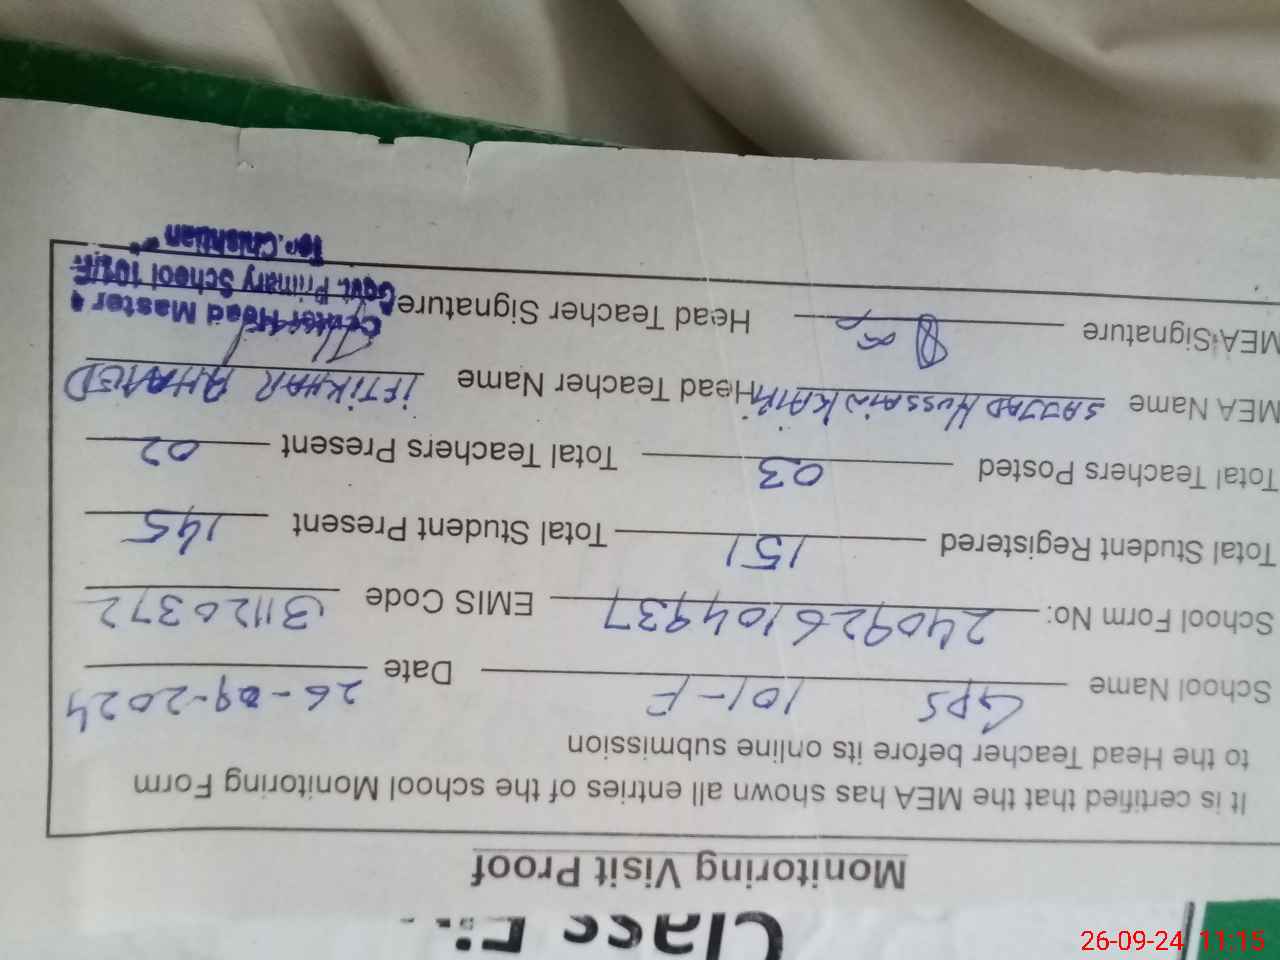 Monitoring Visit Proof
It is certified that the MEA has shown all entries of the school Monitoring Form
to the Head Teacher before its online submission
School Name GPS 101-F Date 26-09-2024
School Form No: 240926104937 EMIS Code 31120372
Total Student Registered 151 Total Student Present 145
Total Teachers Posted 03 Total Teachers Present 02
MEA Name SAJJAD HUSSAIN Head Teacher Name IFTIKHAR AHMED
MEA Signature Head Teacher Signature
Center Head Master
Govt. Primary School 101/F
Teh. Chishtian
26-09-24 11:15